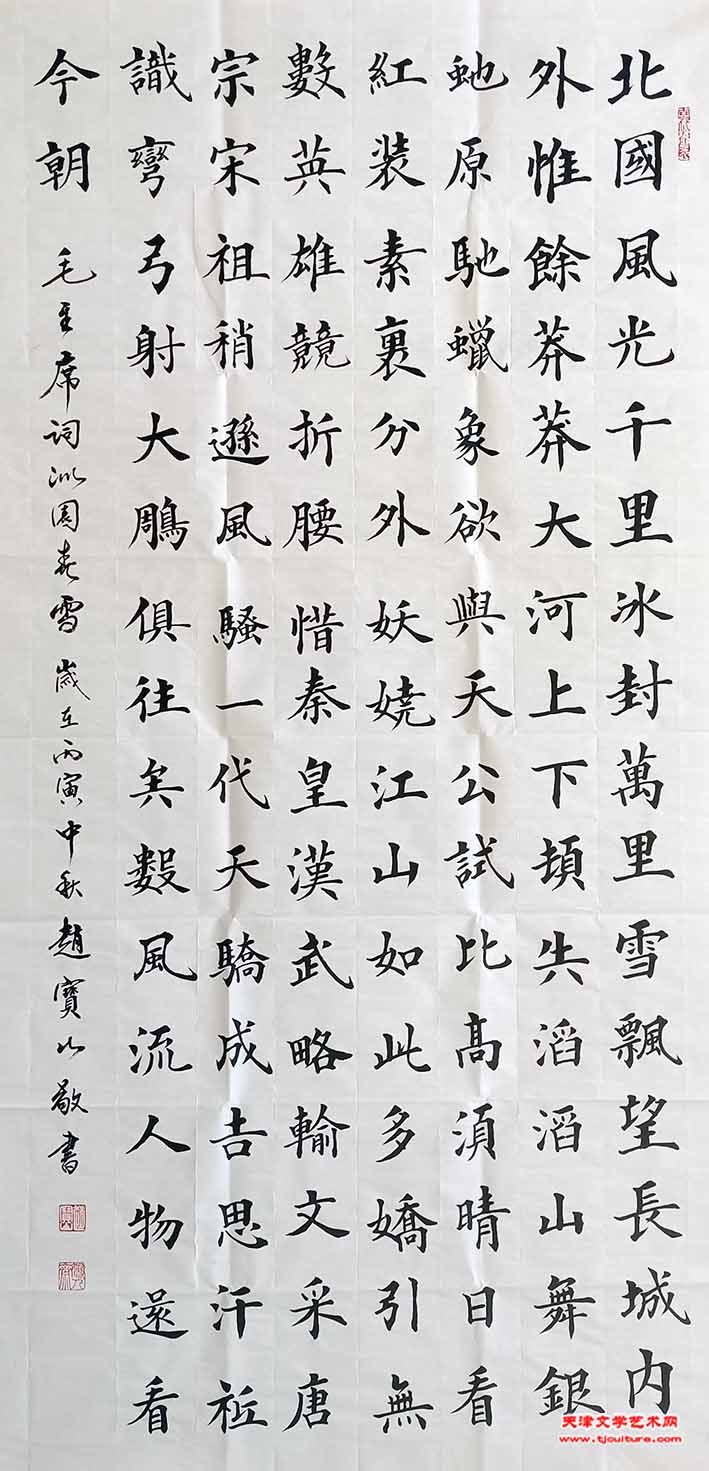 北國風光千里冰封萬里雪飄望長城內
外惟餘莽莽大河上下頓失滔滔山舞銀
虵原馳蠟象欲與天公試比高須晴日看
紅裝素裹分外妖嬈江山如此多嬌引無
數英雄競折腰惜秦皇漢武略輸文采唐
宗宋祖稍遜風騷一代天驕成吉思汗祗
識彎弓射大鵰俱往矣數風流人物還看
今朝
毛主席詞沁園春雪歲在丙寅中秋趙寶山敬書
天津文学艺术网
www.tjculture.com